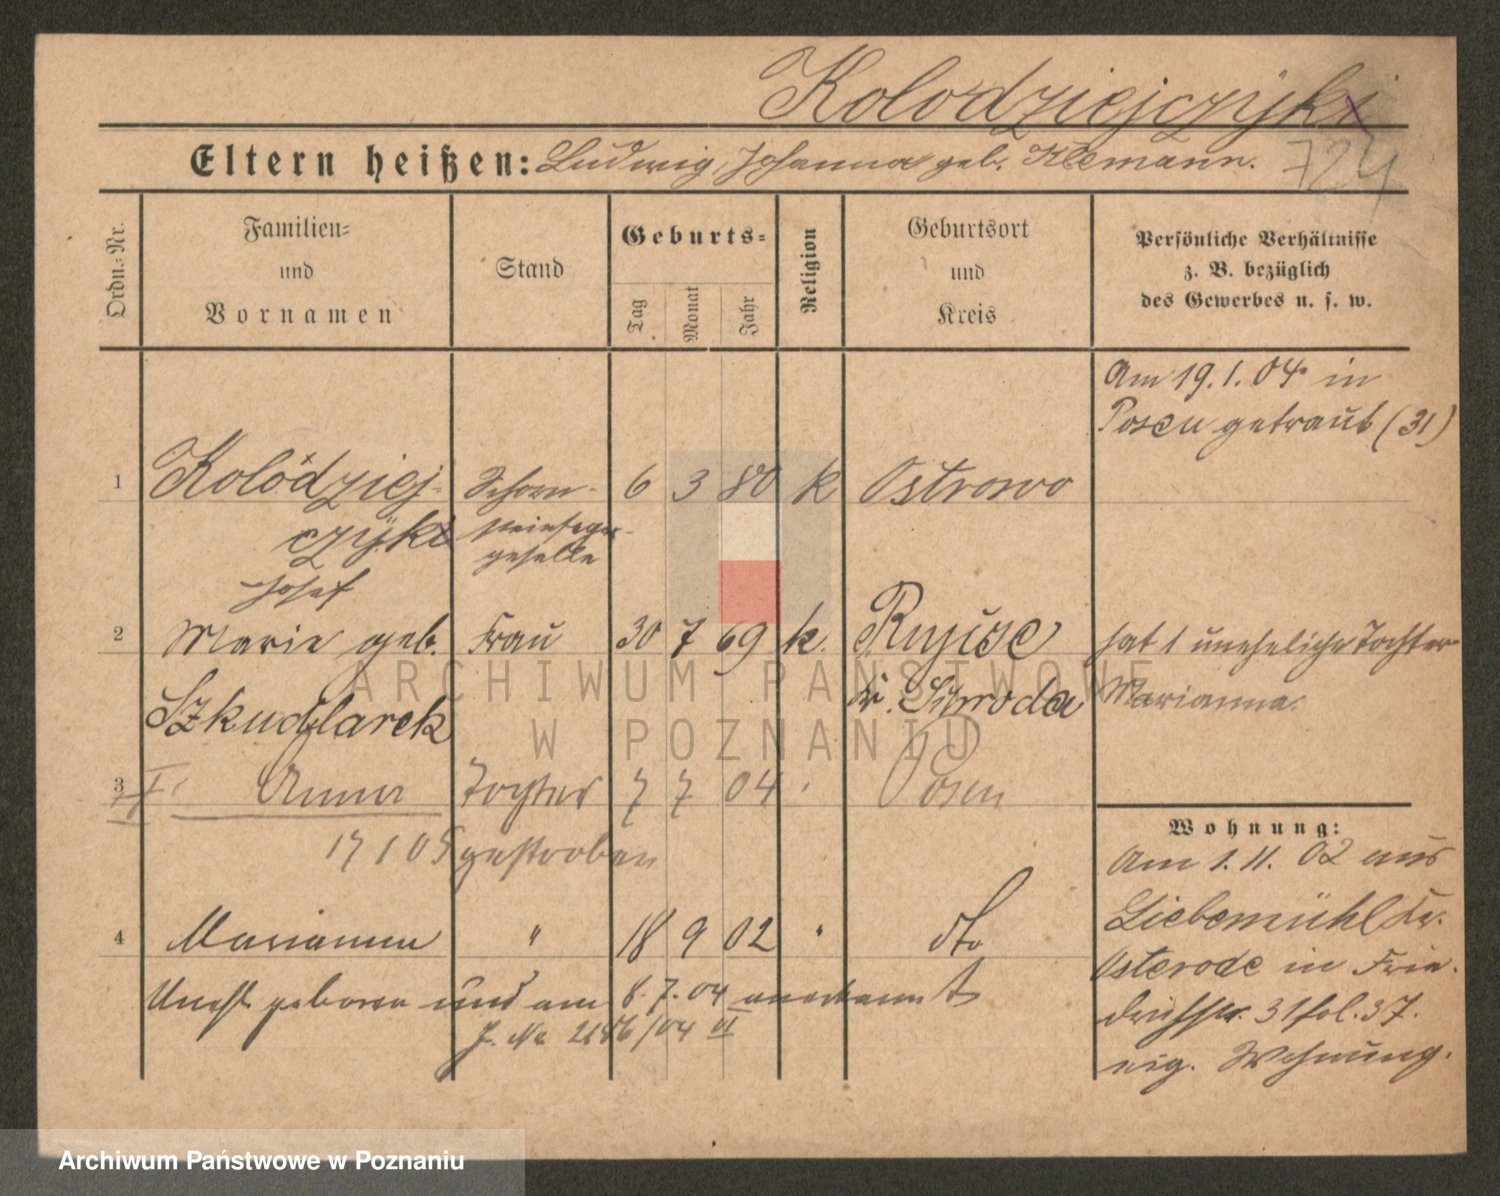 Kolodziejczÿk
Eltern heißen: Ludwig, Johanna geb. Klemann.
724
Ordn.-Nr.
Familien- und Vornamen
Stand
Geburts-
Tag
Monat
Jahr
Religion
Geburtsort und Kreis
Persönliche Verhältnisse z. B. bezüglich des Gewerbes u. s. w.
Am 19.1.04 in
Posen getraut (31)
1 Kolodziej- Schorn- 6 3 80 k Ostrowo
czÿk steinfeger-
geselle
Josef
2 Marie geb. Frau 30 7 69 k. hat 1 uneheliche Tochter
Szkudlarek Kr. Schroda Marianna.
3 Anna Tochter 7 7 04 Posen
17 1 05 gestorben
4 Marianna " 18 9 02 " dto
Unehl. geboren und am 8.7.04 anerkannt
J. No
/04 VI
Wohnung:
Am 1.11.02 aus
Liebemühl Kr.
Osterode in Frie-
drichstr. 31 fol. 37.
eig. Wohnung.
ARCHIWUM PAŃSTWOWE
W POZNANIU
Archiwum Państwowe w Poznaniu